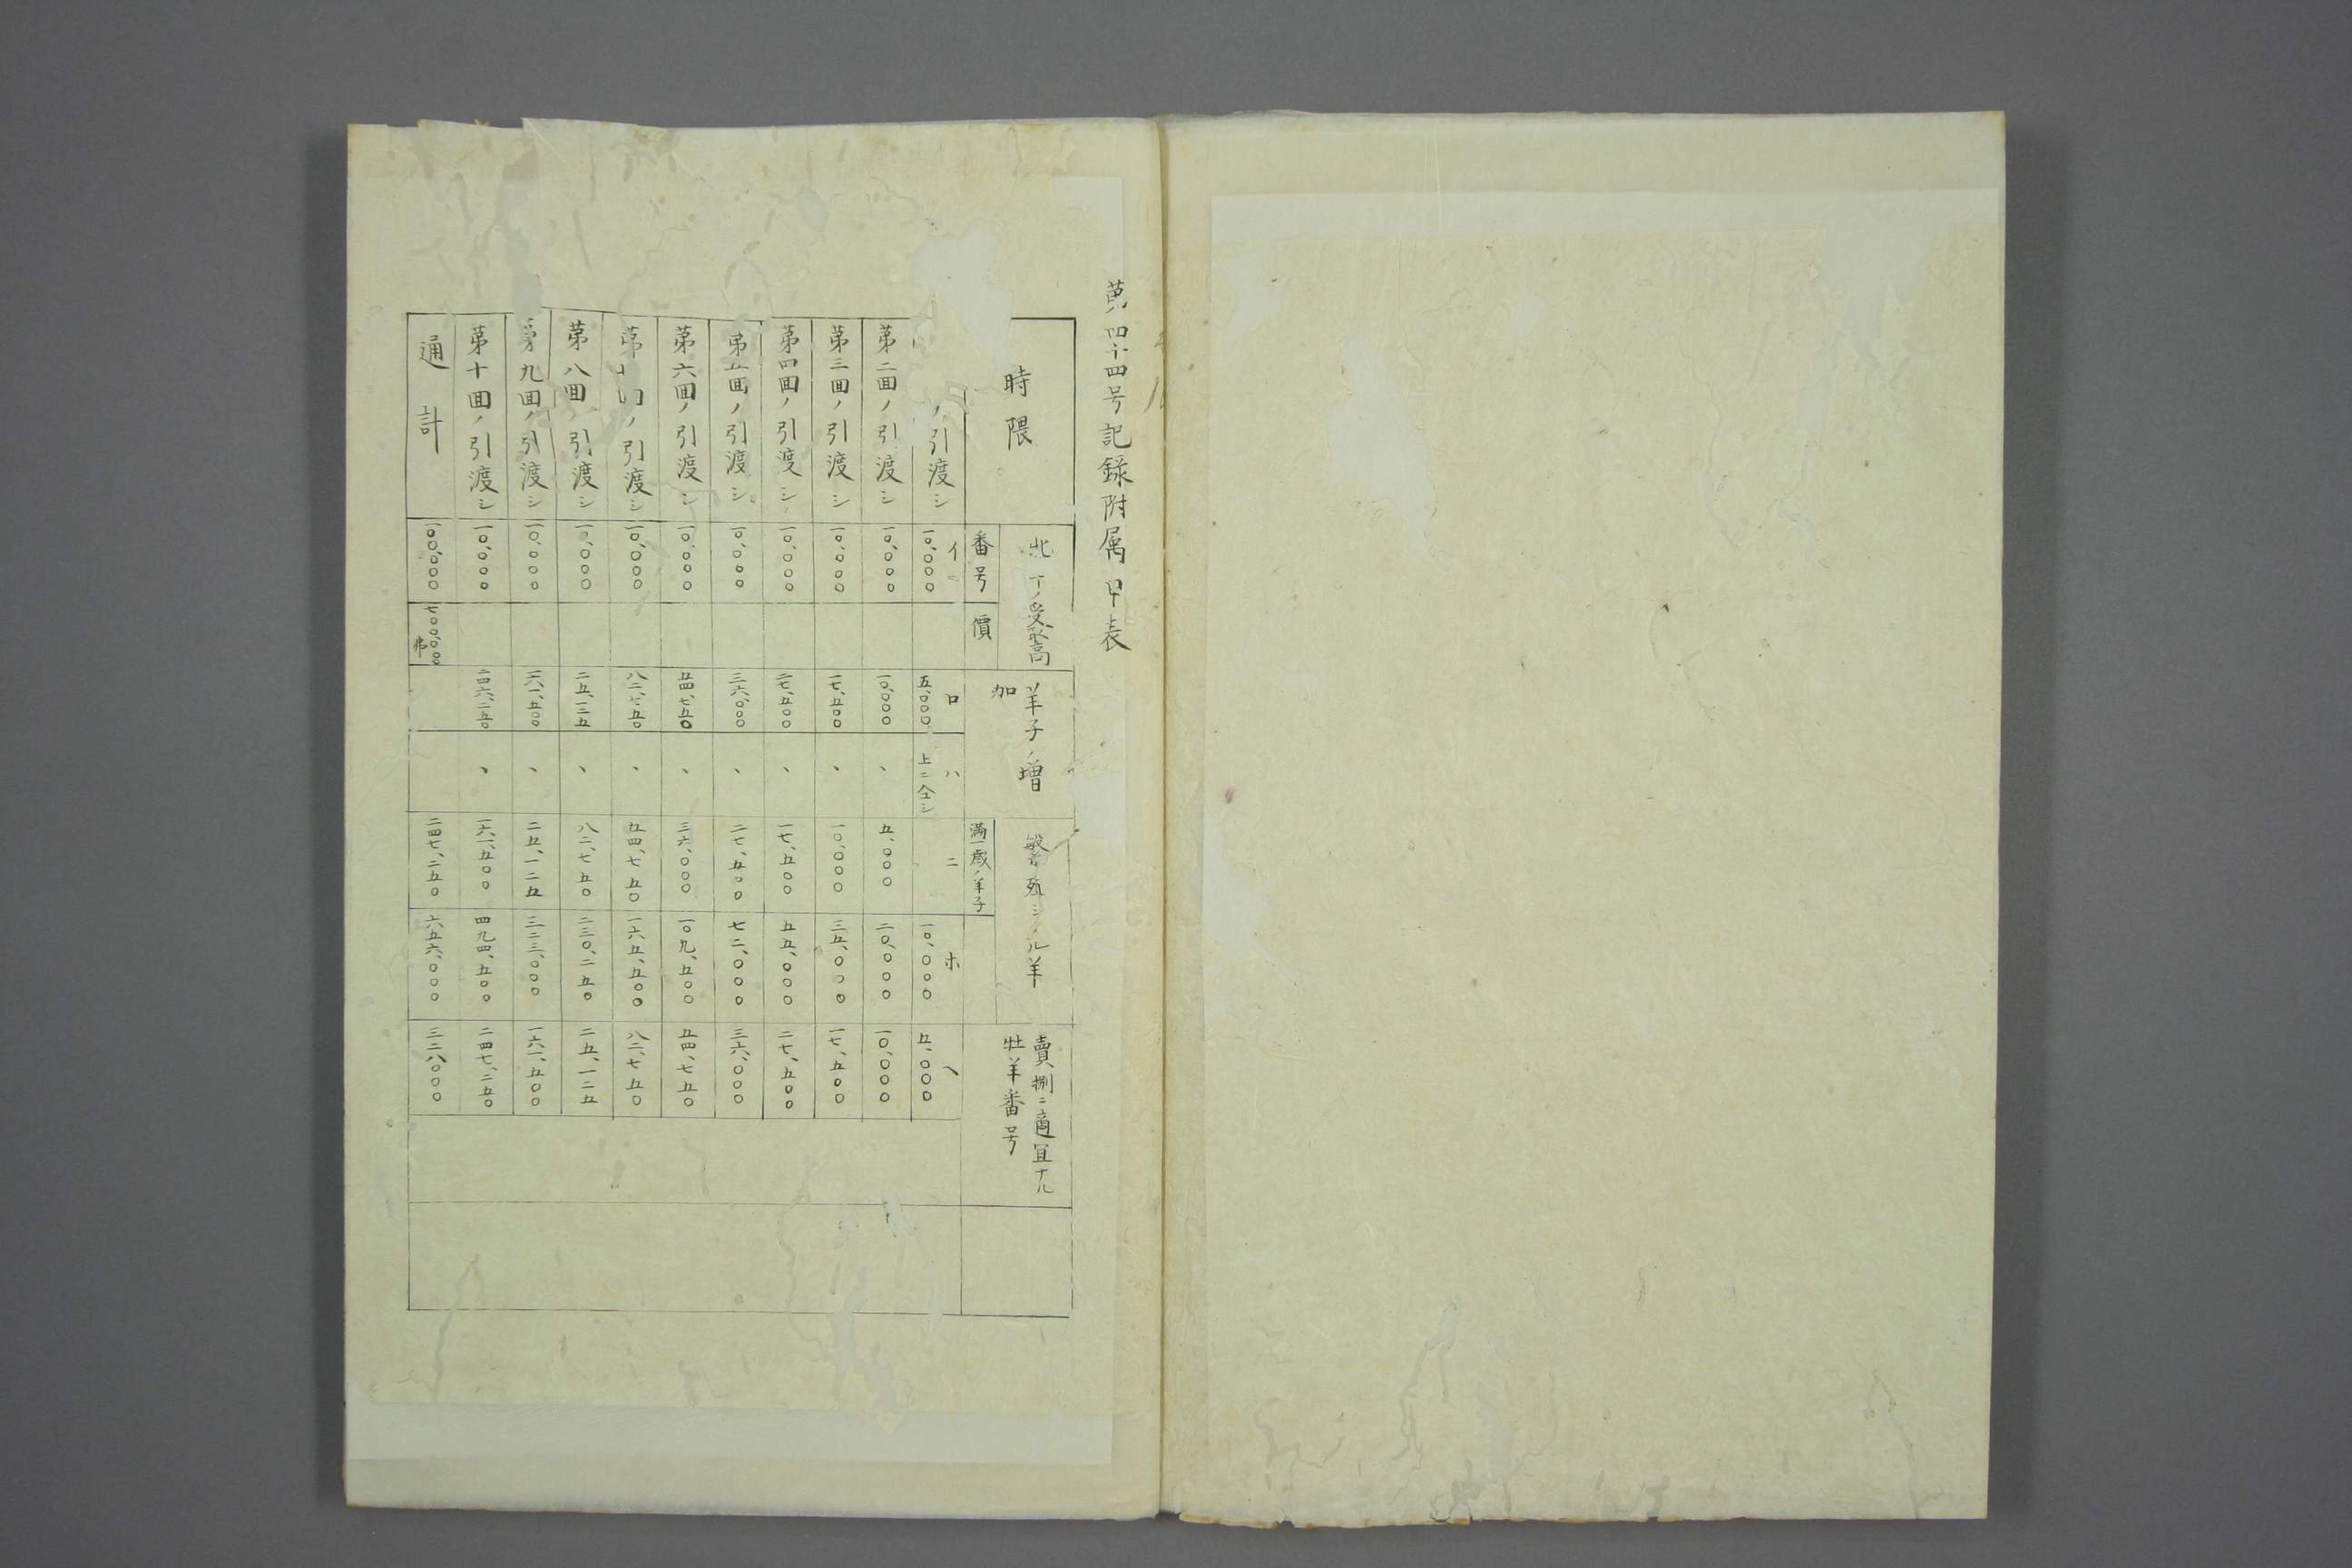 第四十四号記録附属甲表
時限
牝ノ受取高
番号
價
羊子ノ増
加
繁殖シタル羊
満一歳ノ羊子
賣捌ニ適宜ナル
牡羊番号
イ
ロ
ハ
ニ
ホ
ヘ
ノ引渡シ
一〇、〇〇〇
五、〇〇〇
上ニ仝シ
一〇、〇〇〇
五、〇〇〇
第二回ノ引渡シ
一〇、〇〇〇
一〇、〇〇〇
、
五、〇〇〇
二〇、〇〇〇
一〇、〇〇〇
第三回ノ引渡シ
一〇、〇〇〇
一七、五〇〇
、
一〇、〇〇〇
三五、〇〇〇
一七、五〇〇
第四回ノ引渡シ
一〇、〇〇〇
二七、五〇〇
、
一七、五〇〇
五五、〇〇〇
二七、五〇〇
第五回ノ引渡シ
一〇、〇〇〇
三六、〇〇〇
、
二七、五〇〇
七二、〇〇〇
三六、〇〇〇
第六回ノ引渡シ
一〇、〇〇〇
五四、七五〇
、
三六、〇〇〇
一〇九、五〇〇
五四、七五〇
第 回ノ引渡シ
一〇、〇〇〇
八二、七五〇
、
五四、七五〇
一六五、五〇〇
八二、七五〇
第八回ノ引渡シ
一〇、〇〇〇
二五、一二五
、
八二、七五〇
二三〇、二五〇
二五、一二五
第九回ノ引渡シ
一〇、〇〇〇
一六一、五〇〇
、
二五、一二五
三二三、〇〇〇
一六一、五〇〇
第十回ノ引渡シ
一〇、〇〇〇
二四六、二五〇
、
一六一、五〇〇
四九四、五〇〇
二四七、二五〇
通計
一〇〇、〇〇〇
七〇〇、〇〇〇
弗
二四七、二五〇
六五六、〇〇〇
三二八、〇〇〇